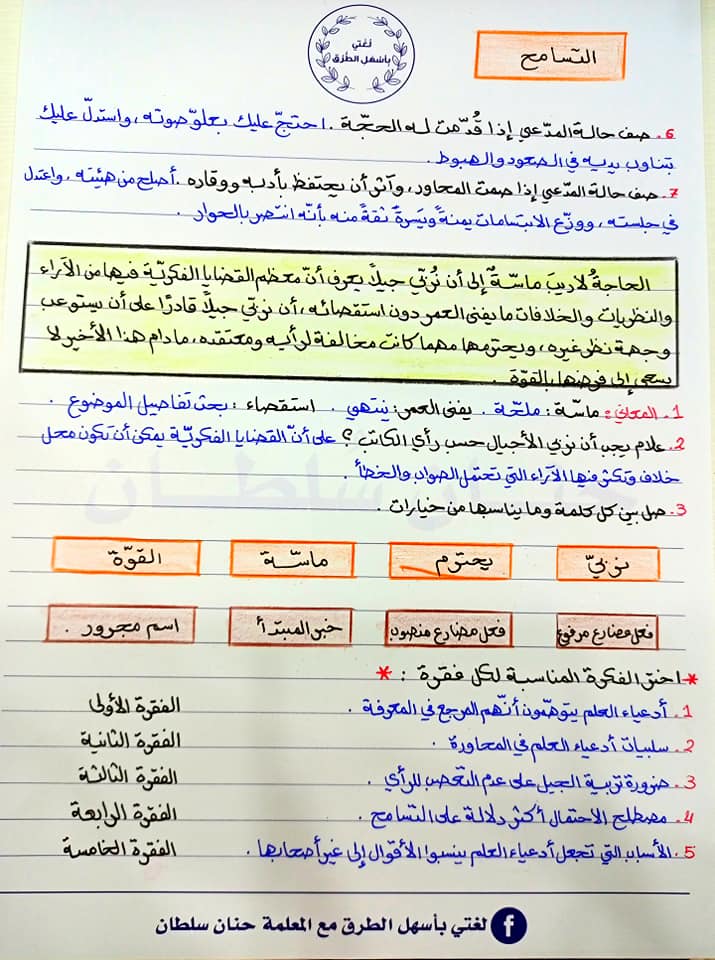 لغتي
بأسهل الطرق
التسامح
6. صف حالة المدّعي إذا قُدّمت له الحجّة. احتجّ عليك بعلوّ صوته، واستدلّ عليك
بتناوب يديه في الصعود والهبوط.
7. صف حالة المدّعي إذا صمت المحاور، وآثر أن يحتفظ بأدبه ووقاره. أصلح من هيئته، واعتدل
في جلسته، ووزّع الابتسامات يمنةً ويَسرةً ثقةً منه بأنّه انتصر بالحوار.
الحاجةُ لاديبَ ماسّةٌ إلى أن نُربّي جيلاً يعرف أنّ معظم القضايا الفكريّة فيها من الآراء
والنظريات والخلافات ما يفنى العمر دون استقصائه، أن نربّي جيلاً قادرًا على أن يستوعب
وجهة نظر غيره، ويحترمها مهما كانت مخالفة لرأيه ومعتقده، مادام هذا الأخير لا
يسعى إلى فرضها بالقوّة.
1. المعاني: ماسّة: ملحّة. يفنى العمر: ينتهي. استقصاء: بحث تفاصيل الموضوع.
2. علام يجب أن نربي الأجيال حسب رأي الكاتب؟ على أنّ القضايا الفكريّة يمكن أن تكون محل
خلاف وتكثر فيها الآراء التي تحتمل الصواب والخطأ.
3. صل بين كل كلمة وما يناسبها من خيارات.
نربّي يحترم ماسّة القوّة
فعل مضارع مرفوع فعل مضارع منصوب خبر المبتدأ اسم مجرور.
* اختر الفكرة المناسبة لكل فقرة: *
1. أدعياء العلم يتوهّمون أنّهم المرجع في المعرفة. الفقرة الأولى
2. سلبيات أدعياء العلم في المحاورة. الفقرة الثانية
3. ضرورة تربية الجيل على عدم التعصب للرأي. الفقرة الثالثة
4. مصطلح الاحتمال أكثر دلالة على التسامح. الفقرة الرابعة
5. الأسباب التي تجعل أدعياء العلم ينسبوا الأقوال إلى غير أصحابها. الفقرة الخامسة
حنان سلطان
لغتي بأسهل الطرق مع المعلمة حنان سلطان